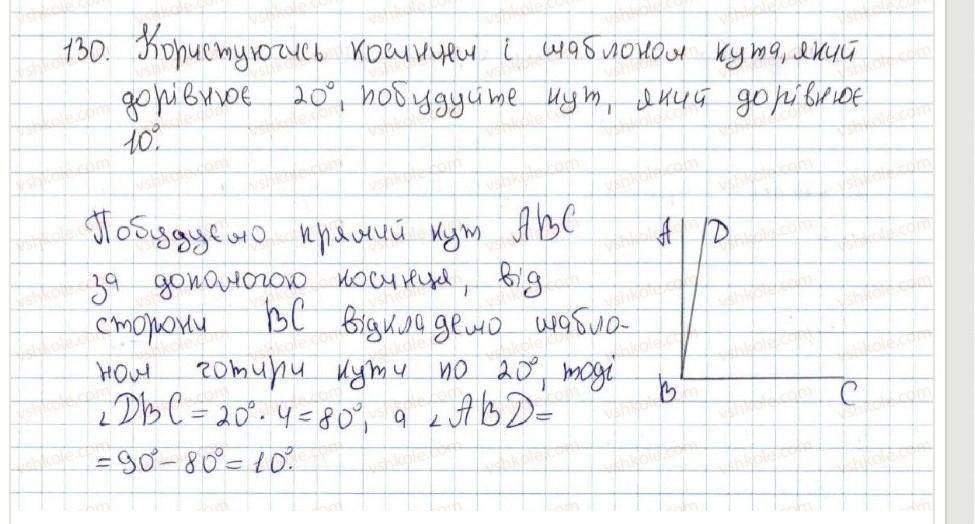 130. Користуючись косинцем і шаблоном кута, який
дорівнює 20°, побудуйте кут, який дорівнює
10°.
Побудуємо прямий кут ABC
за допомогою косинця, від
сторони BC відкладемо шабло-
ном чотири кути по 20°, тоді
∠DBC = 20° · 4 = 80°, а ∠ABD =
= 90° - 80° = 10°.
A D
B C